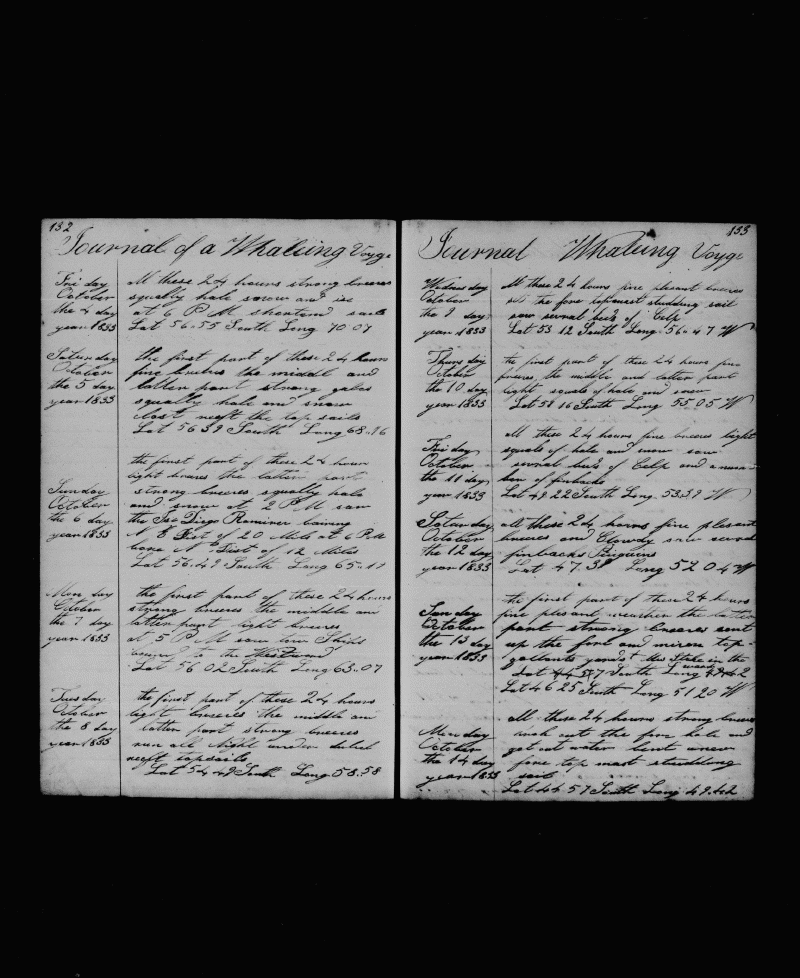 132
Journal of a Whaleing Voyge
Fri day
October
the 4 day
year 1833
All these 24 hours strong breezes
squally hale snow and ice
at 6 P M shortend sail
Lat 56=55 South Long 70 07
Saturday
October
the 5 day
year 1833
the first part of these 24 hours
fine breezes the middle and
latter part strong gales
squally hale and snow
close reeft the top sails
Lat 56 39 South Long 68=16
Sunday
October
the 6 day
year 1833
the first part of these 24 hours
light breezes the latter part
strong breezes squally hale
and snow at 2 P M saw
the Diego Raminer baring
N E Dist of 20 Mils at 6 P M
bore N Dist of 12 Miles
Lat 56.49 South Long 65=17
Mon day
October
the 7 day
year 1833
the first part of these 24 hours
strong breezes the middle and
latter part light breezes
at 5 P M saw two Ships
to the Westward
Lat 56 02 South Long 63=07
Tuesday
October
the 8 day
year 1833
the first part of these 24 hours
light breezes the middle and
latter part strong breezes
run all Night under dubel
reeft topsails
Lat 54 49 South Long 58=58
133
Journal Whaleing Voyge
Wednesday
October
the 9 day
year 1833
All these 24 hours fine plesant breezes
set the fore topmast studding sail
saw several beds of Celp
Lat 53 12 South Long 56=47 W
Thursday
October
the 10 day
year 1833
the first part of these 24 hours fine
breezes the middle and latter part
light squals of hale and snow
Lat 51 16 South Long 55 05 W
Friday
October
the 11 day
year 1833
All these 24 hours fine breezes light
squals of hale and snow saw
several beds of Celp and a num=
ber of finbacks
Lat 49 22 South Long 53.39 W
Saturday
October
the 12 day
year 1833
All these 24 hours fine plesant
breezes and Clowdy saw several
finbacks Pinguins
Lat 47.38 Long 52 04 W
Sunday
October
the 13 day
year 1833
the first part of these 24 hours
fine plesant weather the latter
part strong breezes sent
up the fore and mizen top=
gallants yards in the
Lat 44 57 South Long 49 42
Lat 46 25 South Long 51 20 W
Monday
October
the 14 day
year 1833
All these 24 hours strong breezes
the fore hole and
got out water bent a new
fore top mast studding
sail
Lat 44 57 South Long 49.42